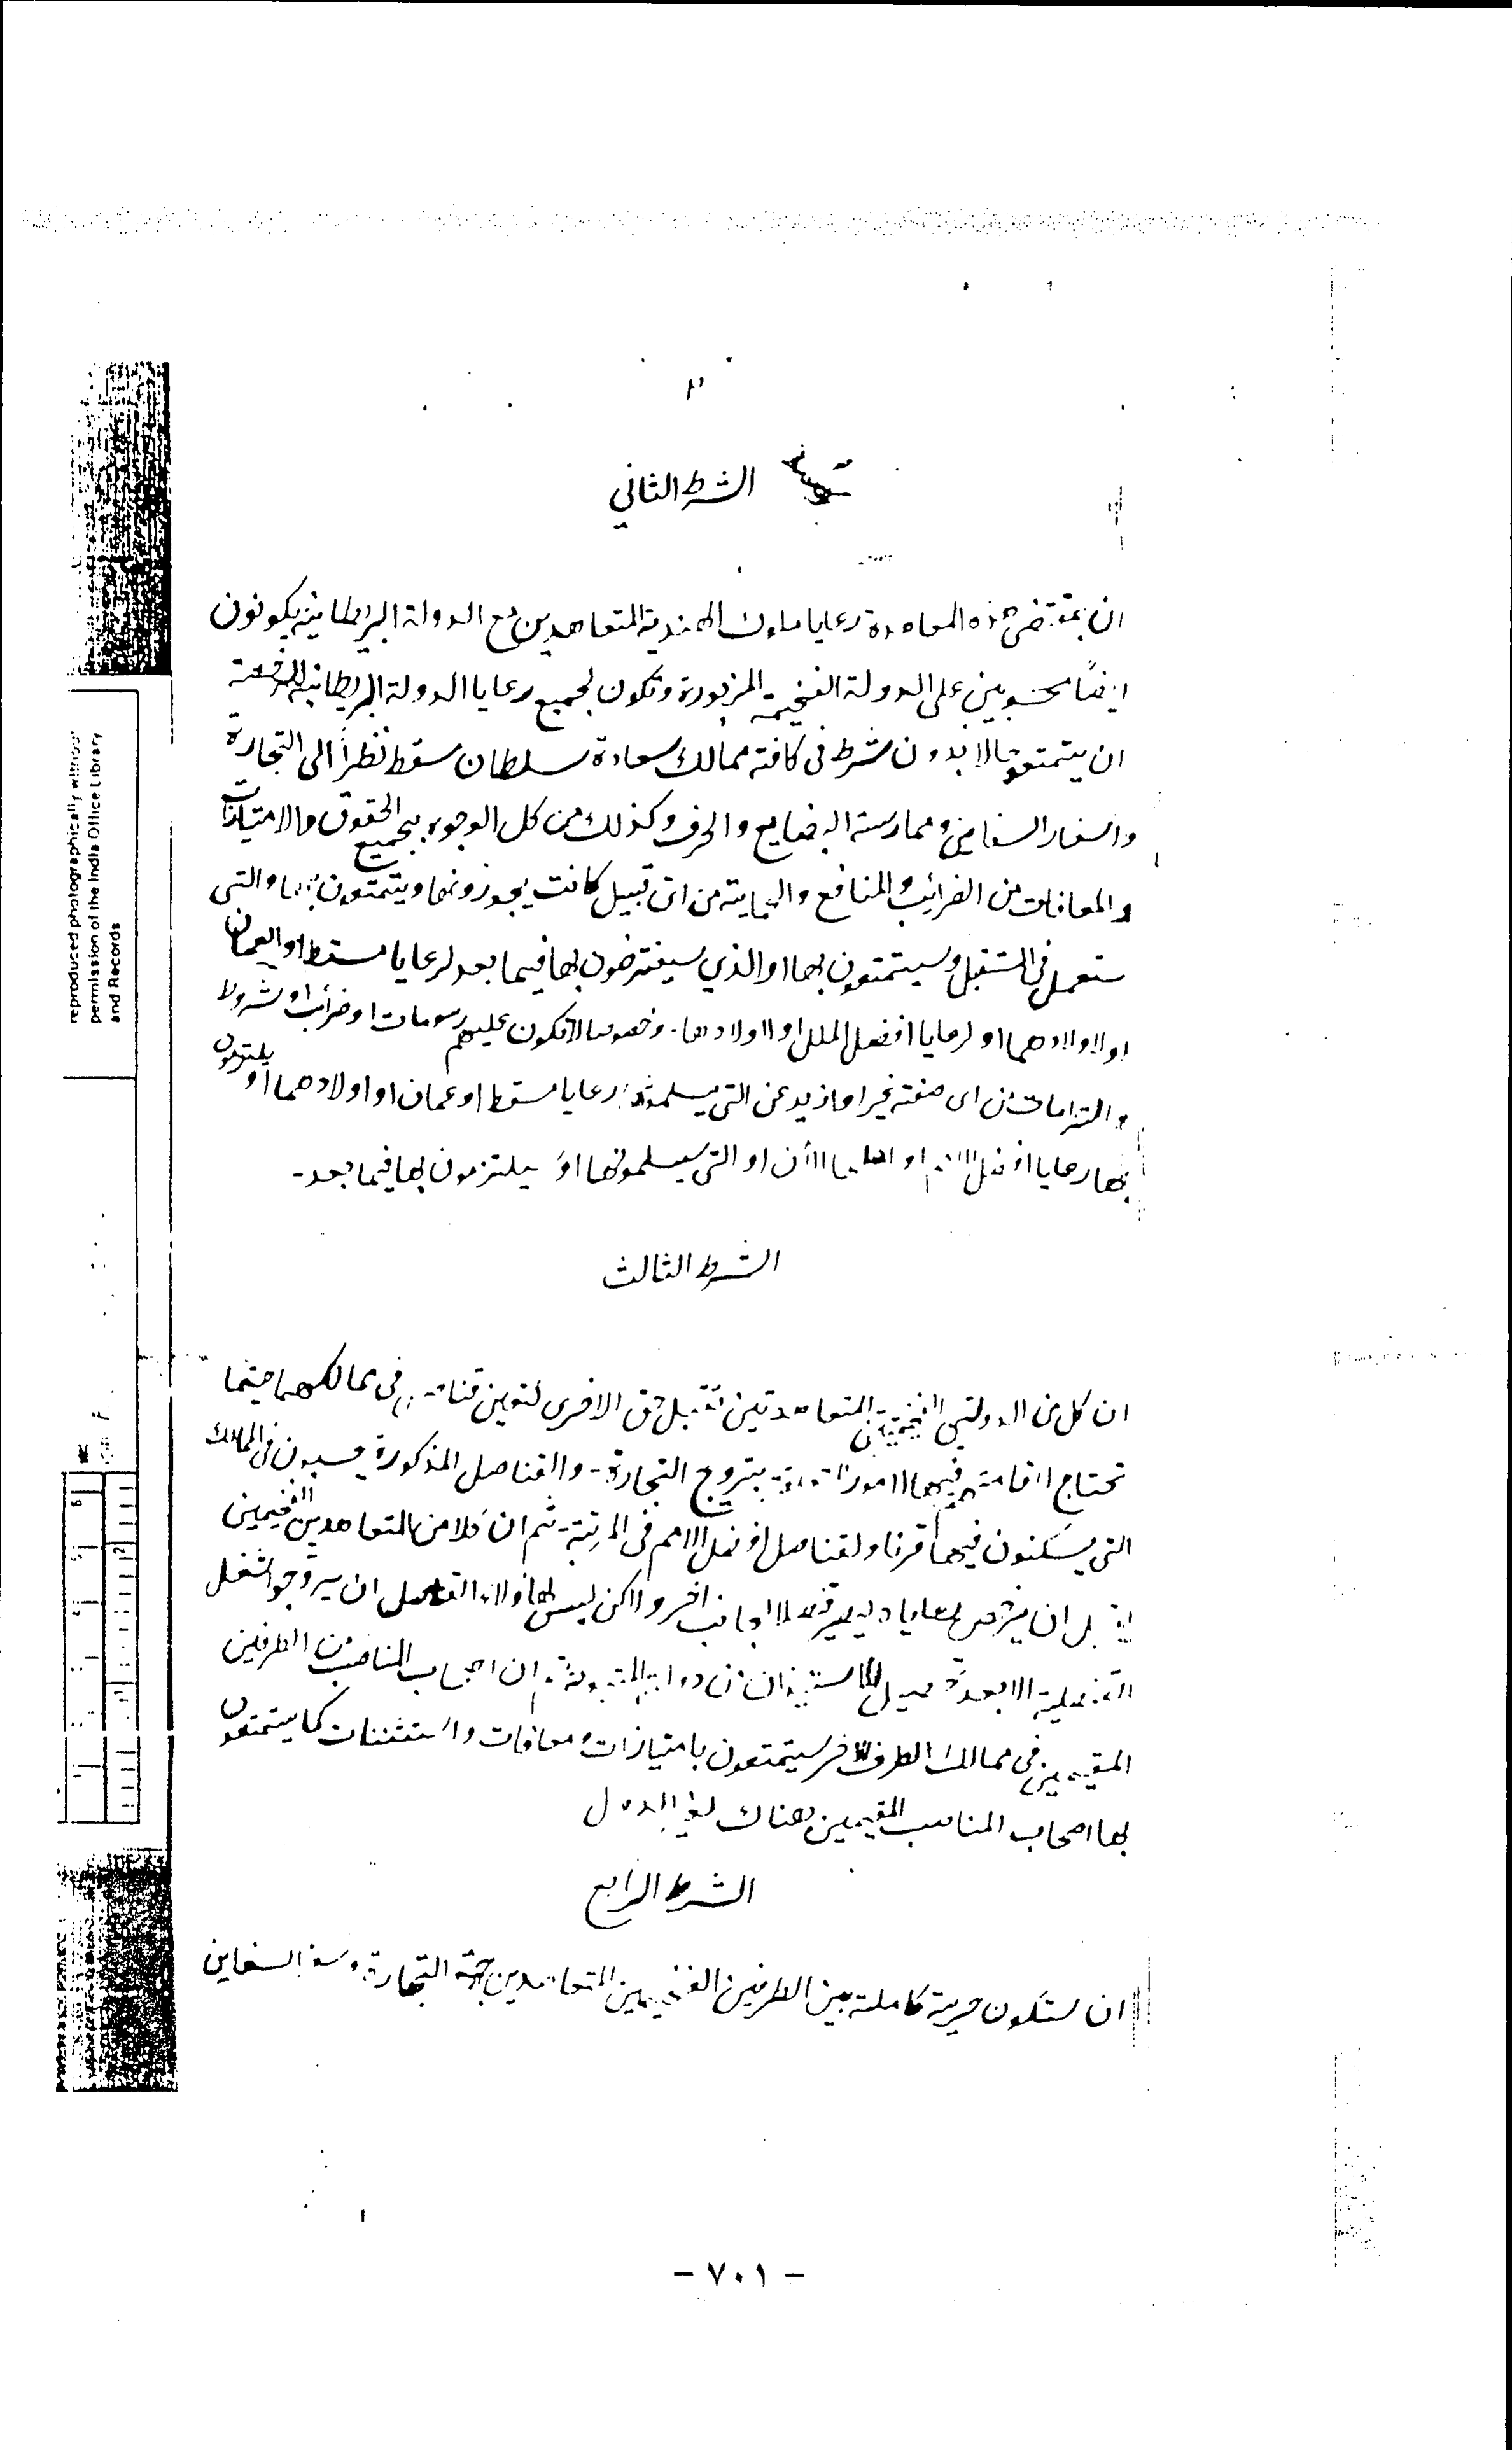 ٣
الشرط الثاني
ان بمقتضى هذه المعاهدة رعايا ملوك الهندية المتعاهدين مع الدولة البريطانية يكونون
ايضًا محسوبين على الدولة الفخيمة المزبورة وتكون لجميع رعايا الدولة البريطانية
ان يتمتعوا بدون شرط في كافة ممالك سعادة سلطان مسقط نظراً الى التجارة
واسفار السفاين وممارسة البضايع والحرف وكذلك من كل الوجوه بجميع الحقوق والامتيازات
والمعافات من الضرائب والمنافع والحماية من اي قبيل كانت يجوزونها ويتمتعون بها والتي
ستعمل في المستقبل وسيتمتعون بهما او الذي سيفترضون بها فيما بعد لرعايا مسقط او العمان
او لاولادهما او لرعايا افضل الملل او اولادها - وخصوصا لا تكون عليهم رسومات او ضرائب او شرولا
والتزامات من اى صفته غير او ازيد عن التي رعايا مسقط او عمان او اولادهما او يلتزمون
بها رعايا افضل او الأن او التي سيسلمونها او يلتزمون بها فيما بعد -
الشرط الثالث
ان كل من الدولتين الفخيمتين المتعاهدتين تقبل حق الاخرى لتعين في ممالكهما حيثما
تحتاج اقامتهم فيها امور بتروج التجارة - والقناصل المذكورة يحسبون في الممالك
التي يسكنون فيها اقرنا ولقناصل افضل الامم في المرتبة - ثم ان كلا من المتعاهدين الفخيمين
ان يرخص لرعايا اجانب اخر ولاكن ليس لهاولاء القناصل ان يروجوا شغل
الا بعدة ان اصحاب المناصب من الطرفين
المقيمين في ممالك الطرف الاخر سيتمتعون بامتيازات ومعافات واستثنات كما يتمتعون
بها اصحاب المناصب المقيمين هناك لغير الدول
الشرط الرابع
ان ستكون حرية كاملة بين الطرفين الفخيمين المتعاهدين جهة التجارة وسفر السفاين
- ٧٠١ -
reproduced photographically without
permission of the India Office Library
and Records